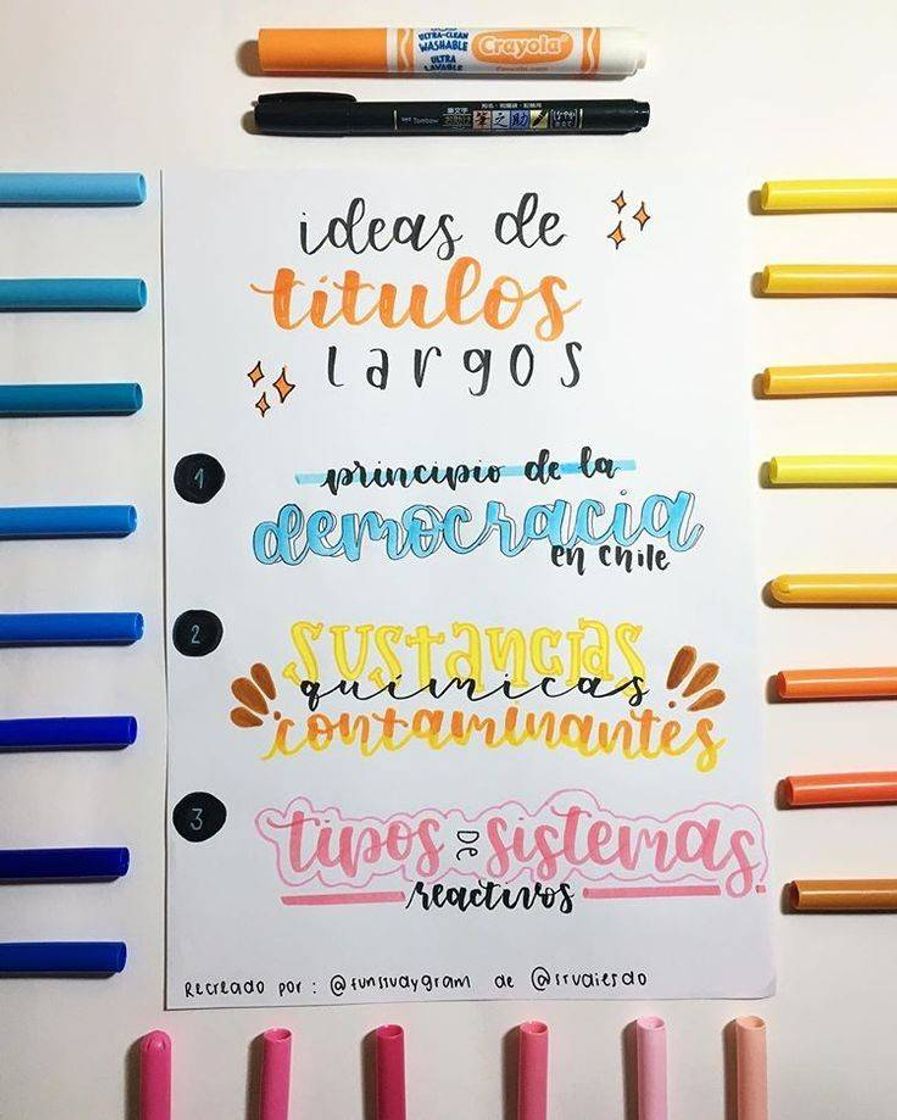 ULTRA-CLEAN
WASHABLE
ULTRA
LAVABLE
Crayola
Tombow
筆之助
ideas de
títulos
largos
1
principio de la
democracia
en chile
2
sustancias
químicas
contaminantes
3
tipos DE sistemas
reactivos
Recreado por: @funstudygram de @studiesdo